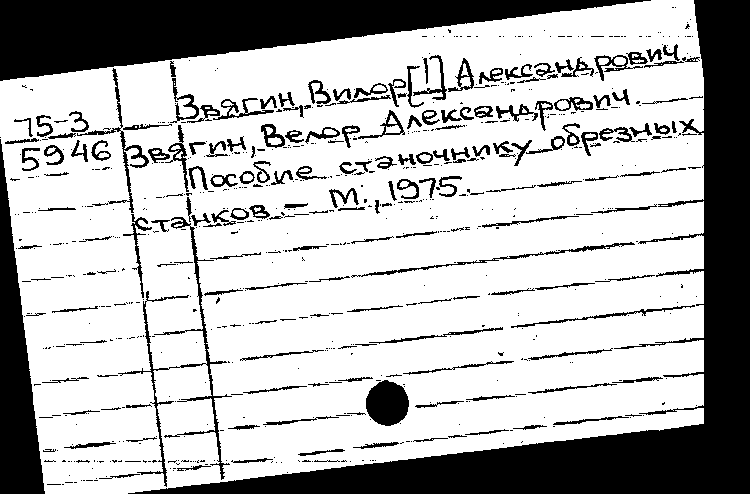 Звягин, Вилор[!] Александрович.
75-3
5946
Звягин, Велор Александрович.
Пособие станочнику обрезных
станков. — М., 1975.